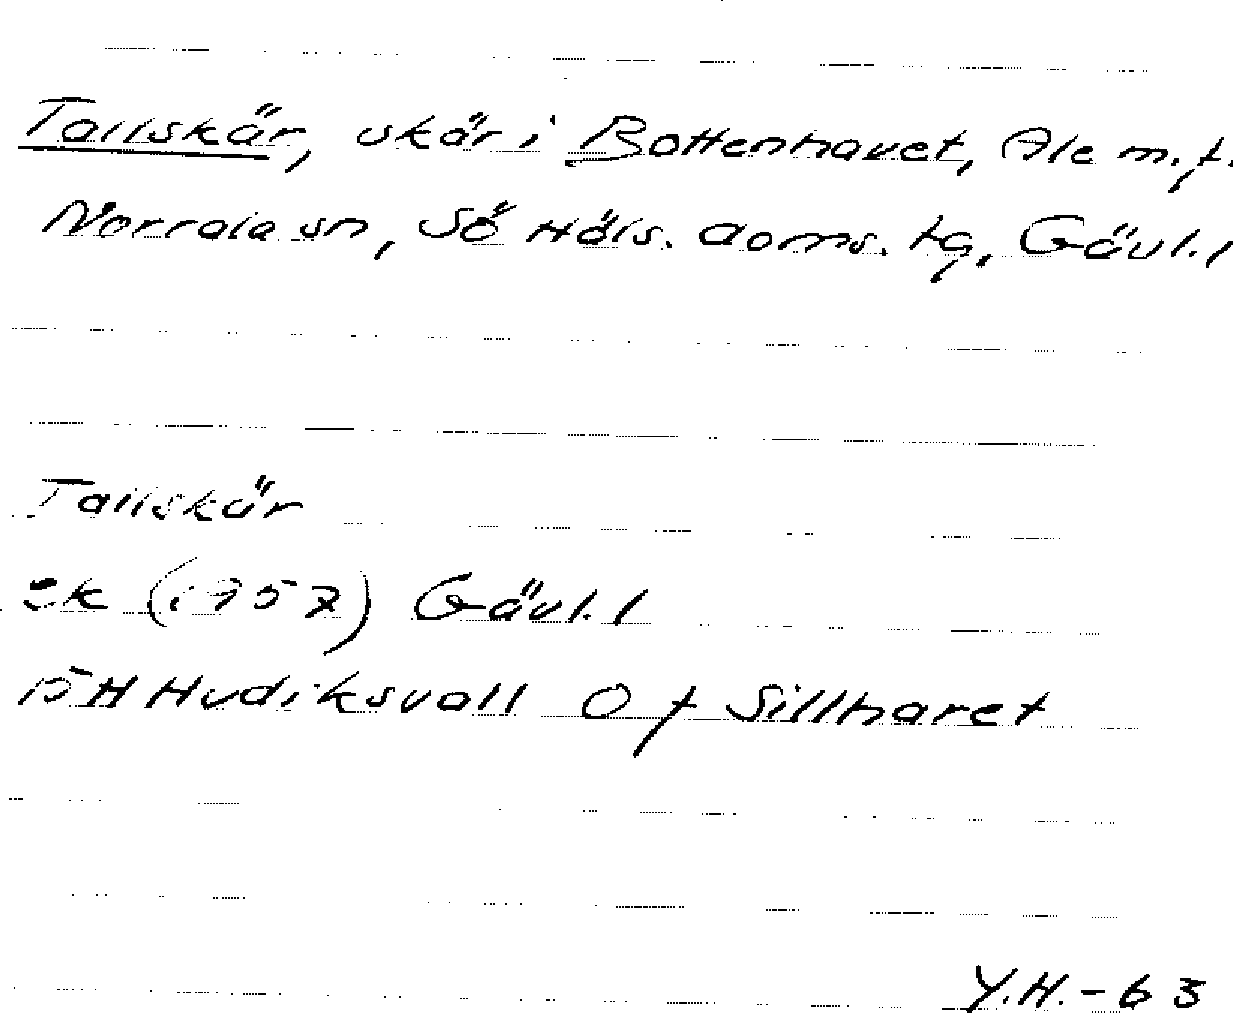 Tallskär, skär i Bottenhavet, Ale m.fl.
Norrala sn, Sö Häls. doms. tg, Gävl. l
Tallskär
ek (1957) Gävl. l
15H Hudiksvall O f Sillharet
Y.H.-63